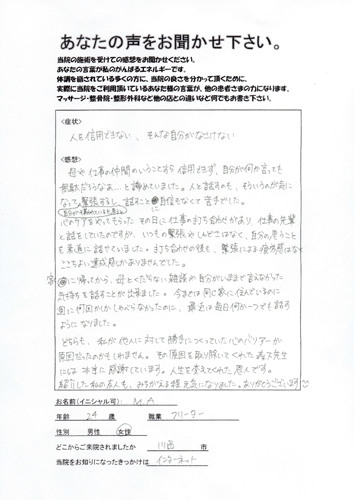 あなたの声をお聞かせ下さい。
当院の施術を受けての感想をお聞かせください。
あなたの言葉が私のがんばるエネルギーです。
体調を崩されている多くの方に、当院の良さを分かって頂くために、
実際に当院をご利用頂いているあなた様の言葉が、他の患者さまの力になります。
マッサージ・整骨院・整形外科など他の店との違いなど何でもお書き下さい。
<症状>
人を信用できない、そんな自分がなさけない
<感想>
母や仕事の仲間のいうことすら信用できず、自分が何か言っても
無駄だろうなぁ…と諦めていました。人と話すのも、そういうのが気に
なって、緊張するし、話すことに自信もなくて苦手でした。
心のケアをやってもらった その日に仕事の打ち合わせがあり、仕事の先輩
と話をしていたのですが、いつもの緊張やしんどさはなく、自分の思うこと
を素直に話せていました。打ち合わせの後も、緊張による疲労感はなく
ここちよい達成感しかありませんでした。
家に帰ってから、母とくだらない雑談や自分がいままで言えなかった
気持ちを話すことが出来ました。今までは同じ家に住んでいるのに
週に何回かしかしゃべらなかったのに、最近は毎日何か一つでも話す
ようになりました。
どちらも、私が他人に対して勝手につくっていた心のバリアーが
原因だったのかもしれません。その原因を取り除いてくれた先生
には本当に感謝しています。人生を変えてくれた恩人です。
紹介した私の友人も、みちがえる程元気になりました。ありがとうございます
お名前(イニシャル可): M.A
年齢 24 歳 職業 フリーター
性別 男性 女性
どこからご来院されましたか 川西 市
当院をお知りになったきっかけは インターネット